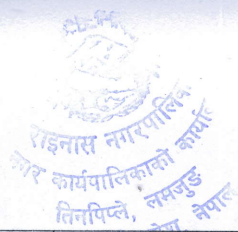 राइनास नगरपालिका
नगर कार्यपालिकाको कार्यालय
तिनपिप्ले, लमजुङ
नेपाल